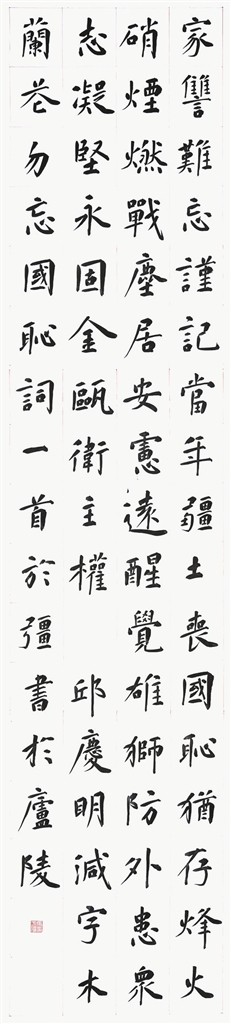 家讐難忘謹記當年疆土喪國恥猶存烽火
硝煙燃戰塵居安慮遠醒覺雄獅防外患衆
志凝堅永固金甌衛主權 邱慶明減字木
蘭花勿忘國恥詞一首於彊書於廬陵